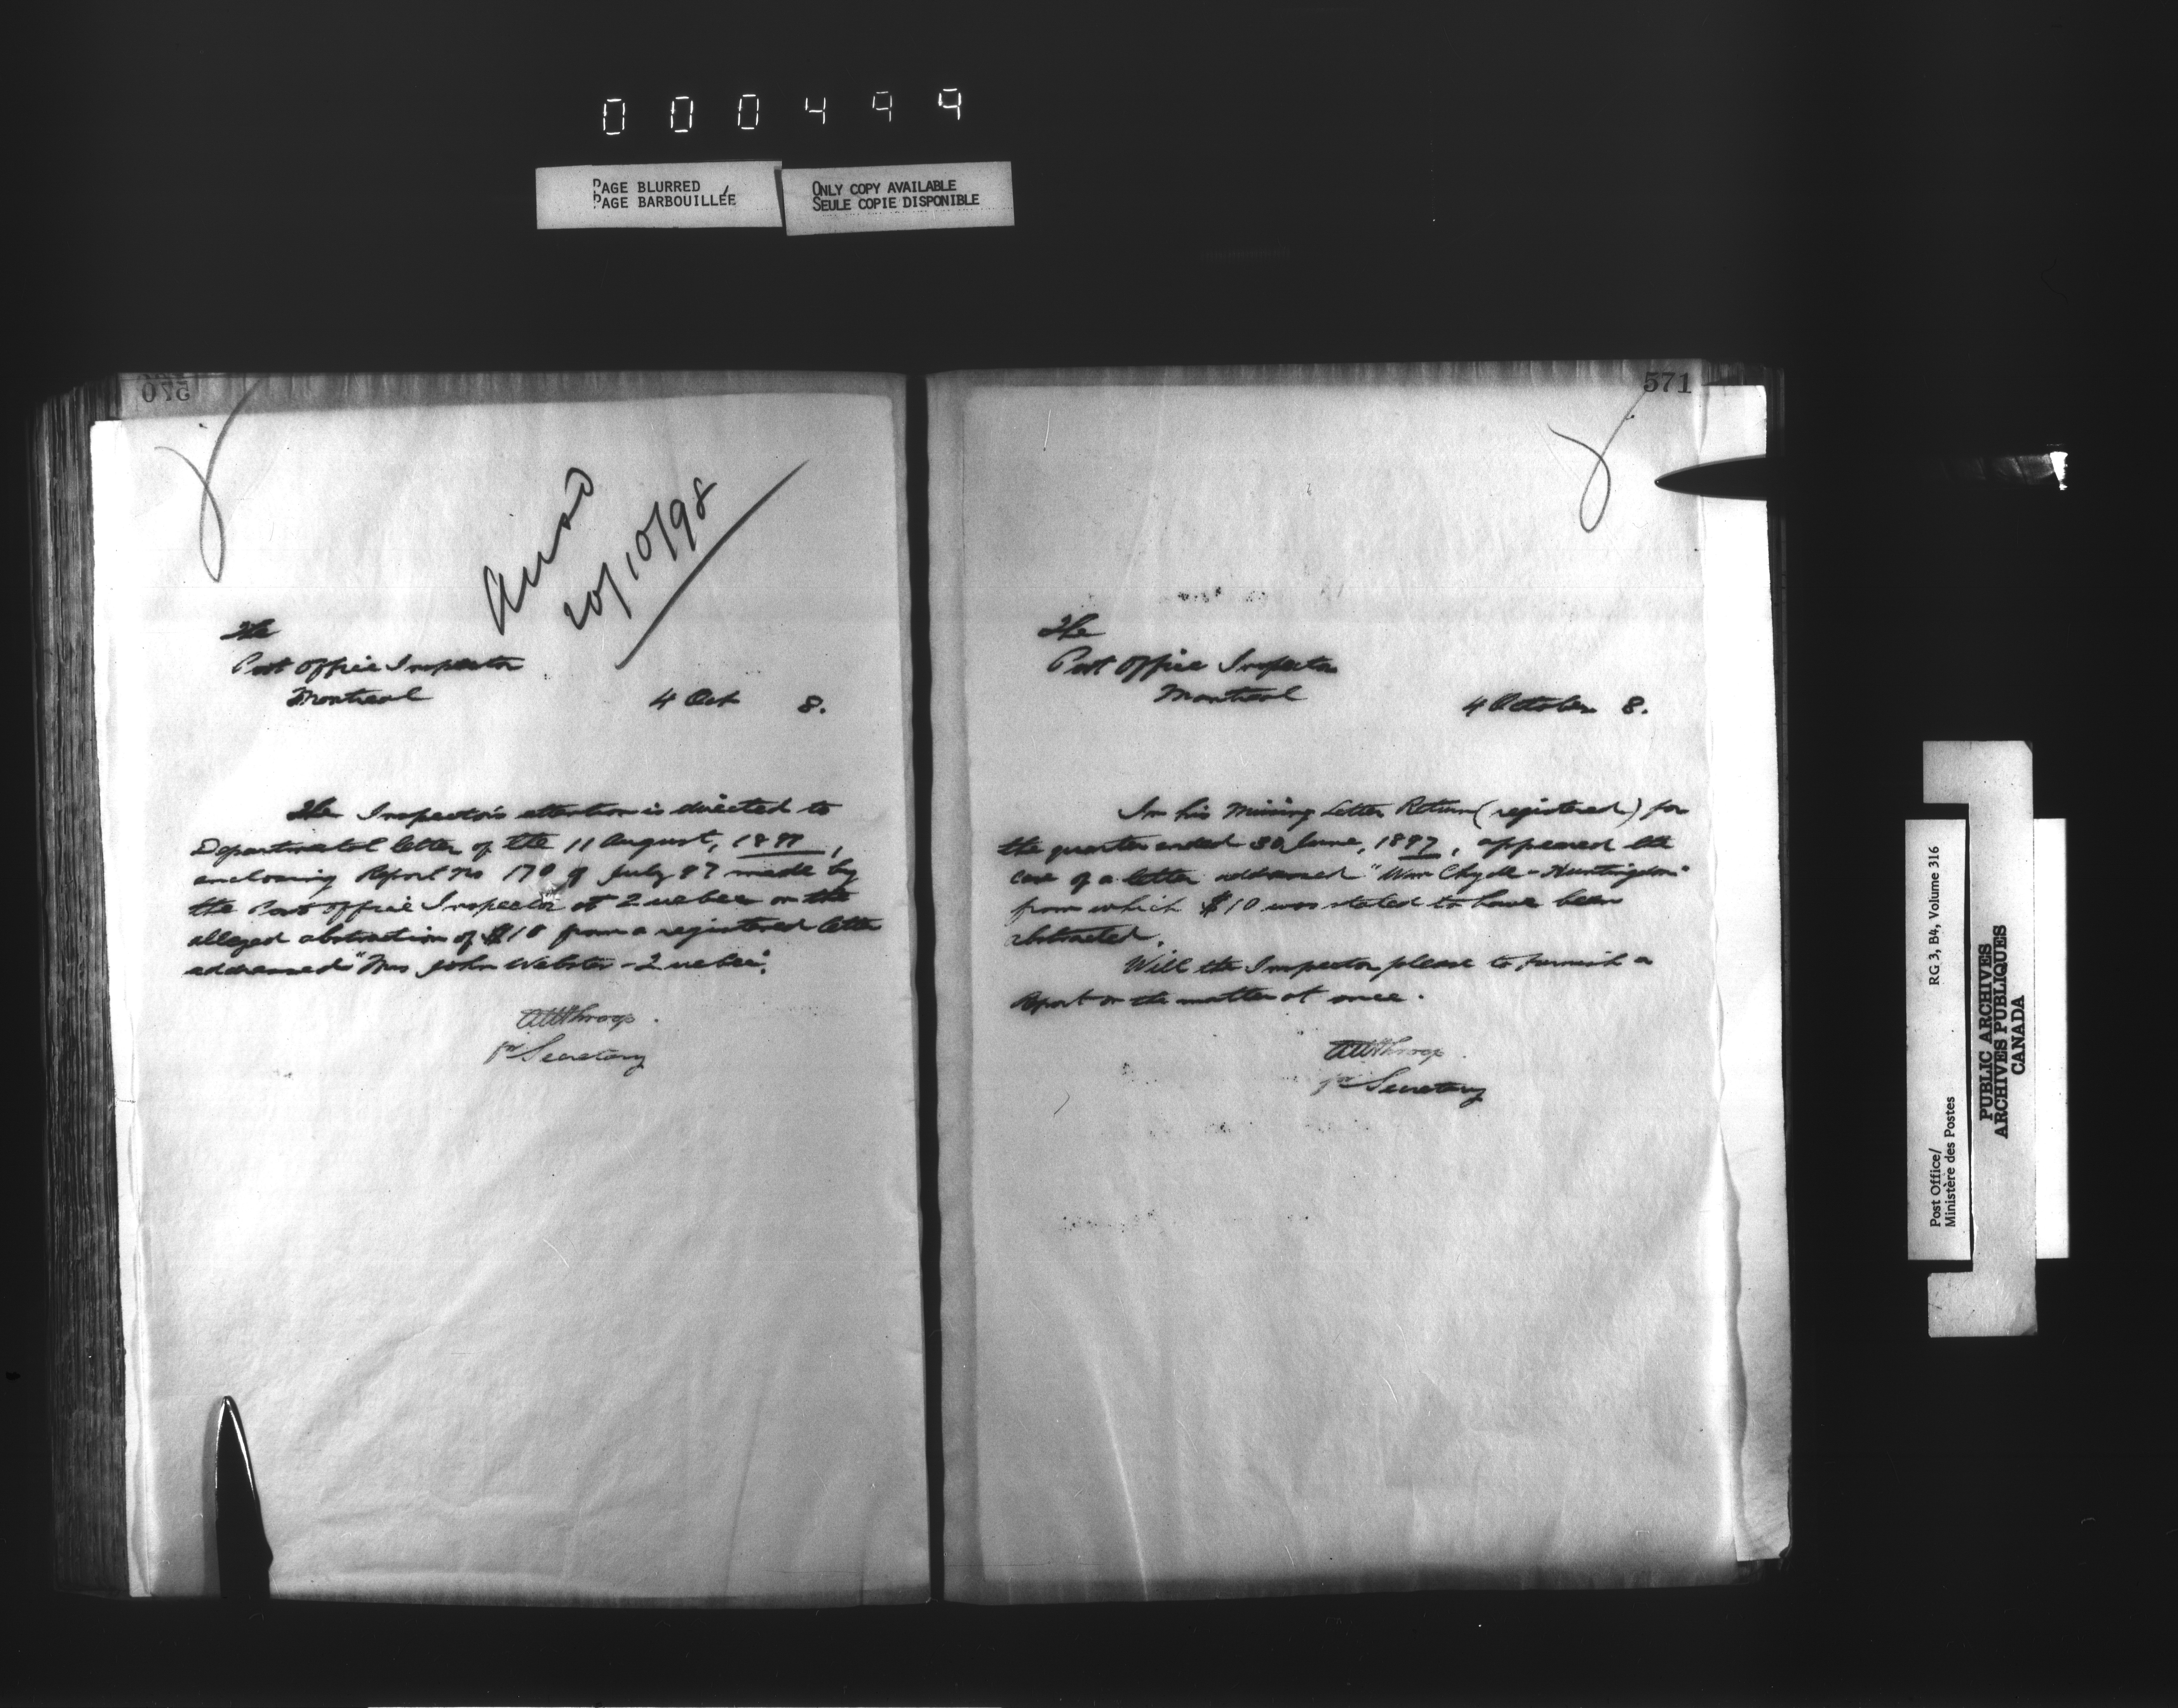 000499
PAGE BLURRED
PAGE BARBOUILLÉE
ONLY COPY AVAILABLE
SEULE COPIE DISPONIBLE
570
20/10/98
The
Post Office Inspector
Montreal
4 Oct 8.
The Inspector's attention is directed to
Departmental letter of the 11 August, 1897,
enclosing Report No 170 of July 97 made by
the Post Office Inspector at Quebec on the
alleged abstraction of $10 from a registered letter
addressed "Mrs John Webster - Quebec".
AWThroop.
pr Secretary
571
The
Post Office Inspector
Montreal
4 October 8.
In his Missing Letter Return (registered) for
the quarter ended 30 June, 1897, appeared the
case of a letter addressed "Wm Clyde - Huntingdon"
from which $10 was stated to have been
abstracted.
Will the Inspector please to furnish a
Report on the matter at once.
AWThroop.
pr Secretary
Post Office/
Ministère des Postes
RG 3, B4, Volume 316
PUBLIC ARCHIVES
ARCHIVES PUBLIQUES
CANADA